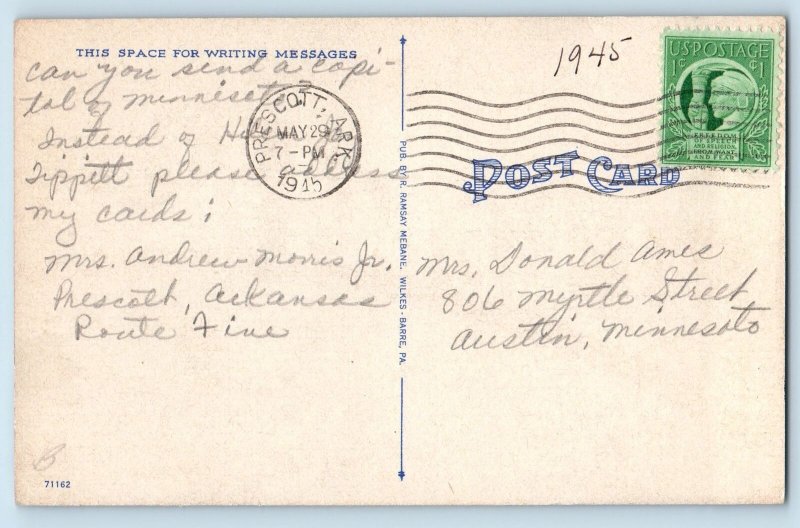 THIS SPACE FOR WRITING MESSAGES
can you send a capi-
tal of Minnisota
Instead of
Tippitt please address
my cards;
Mrs. Andrew Morris Jr.
Prescott, Arkansas
Route Five
71162
PRESCOTT, ARK.
MAY 29
7-PM
1945
PUB. BY R. RAMSAY MEBANE, WILKES-BARRE, PA.
1945
POST CARD
U.S.POSTAGE
1¢ ¢1
FREEDOM
OF SPEECH
AND RELIGION,
FROM WANT
AND FEAR
Mrs. Donald Ames
806 Myrtle Street
Austin, Minnesota